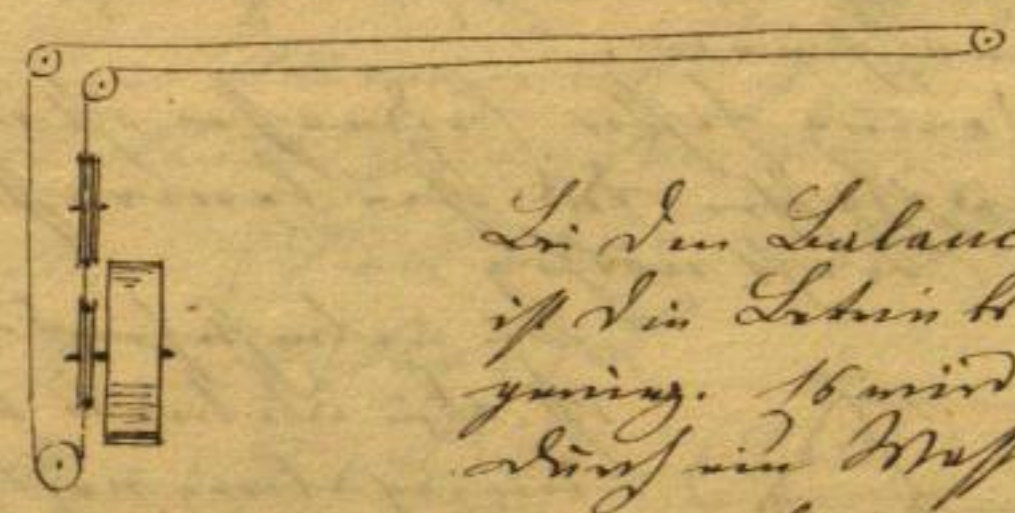 Bei den Balanc
ist die Betriebs
gering. Es wird
durch ein Wass